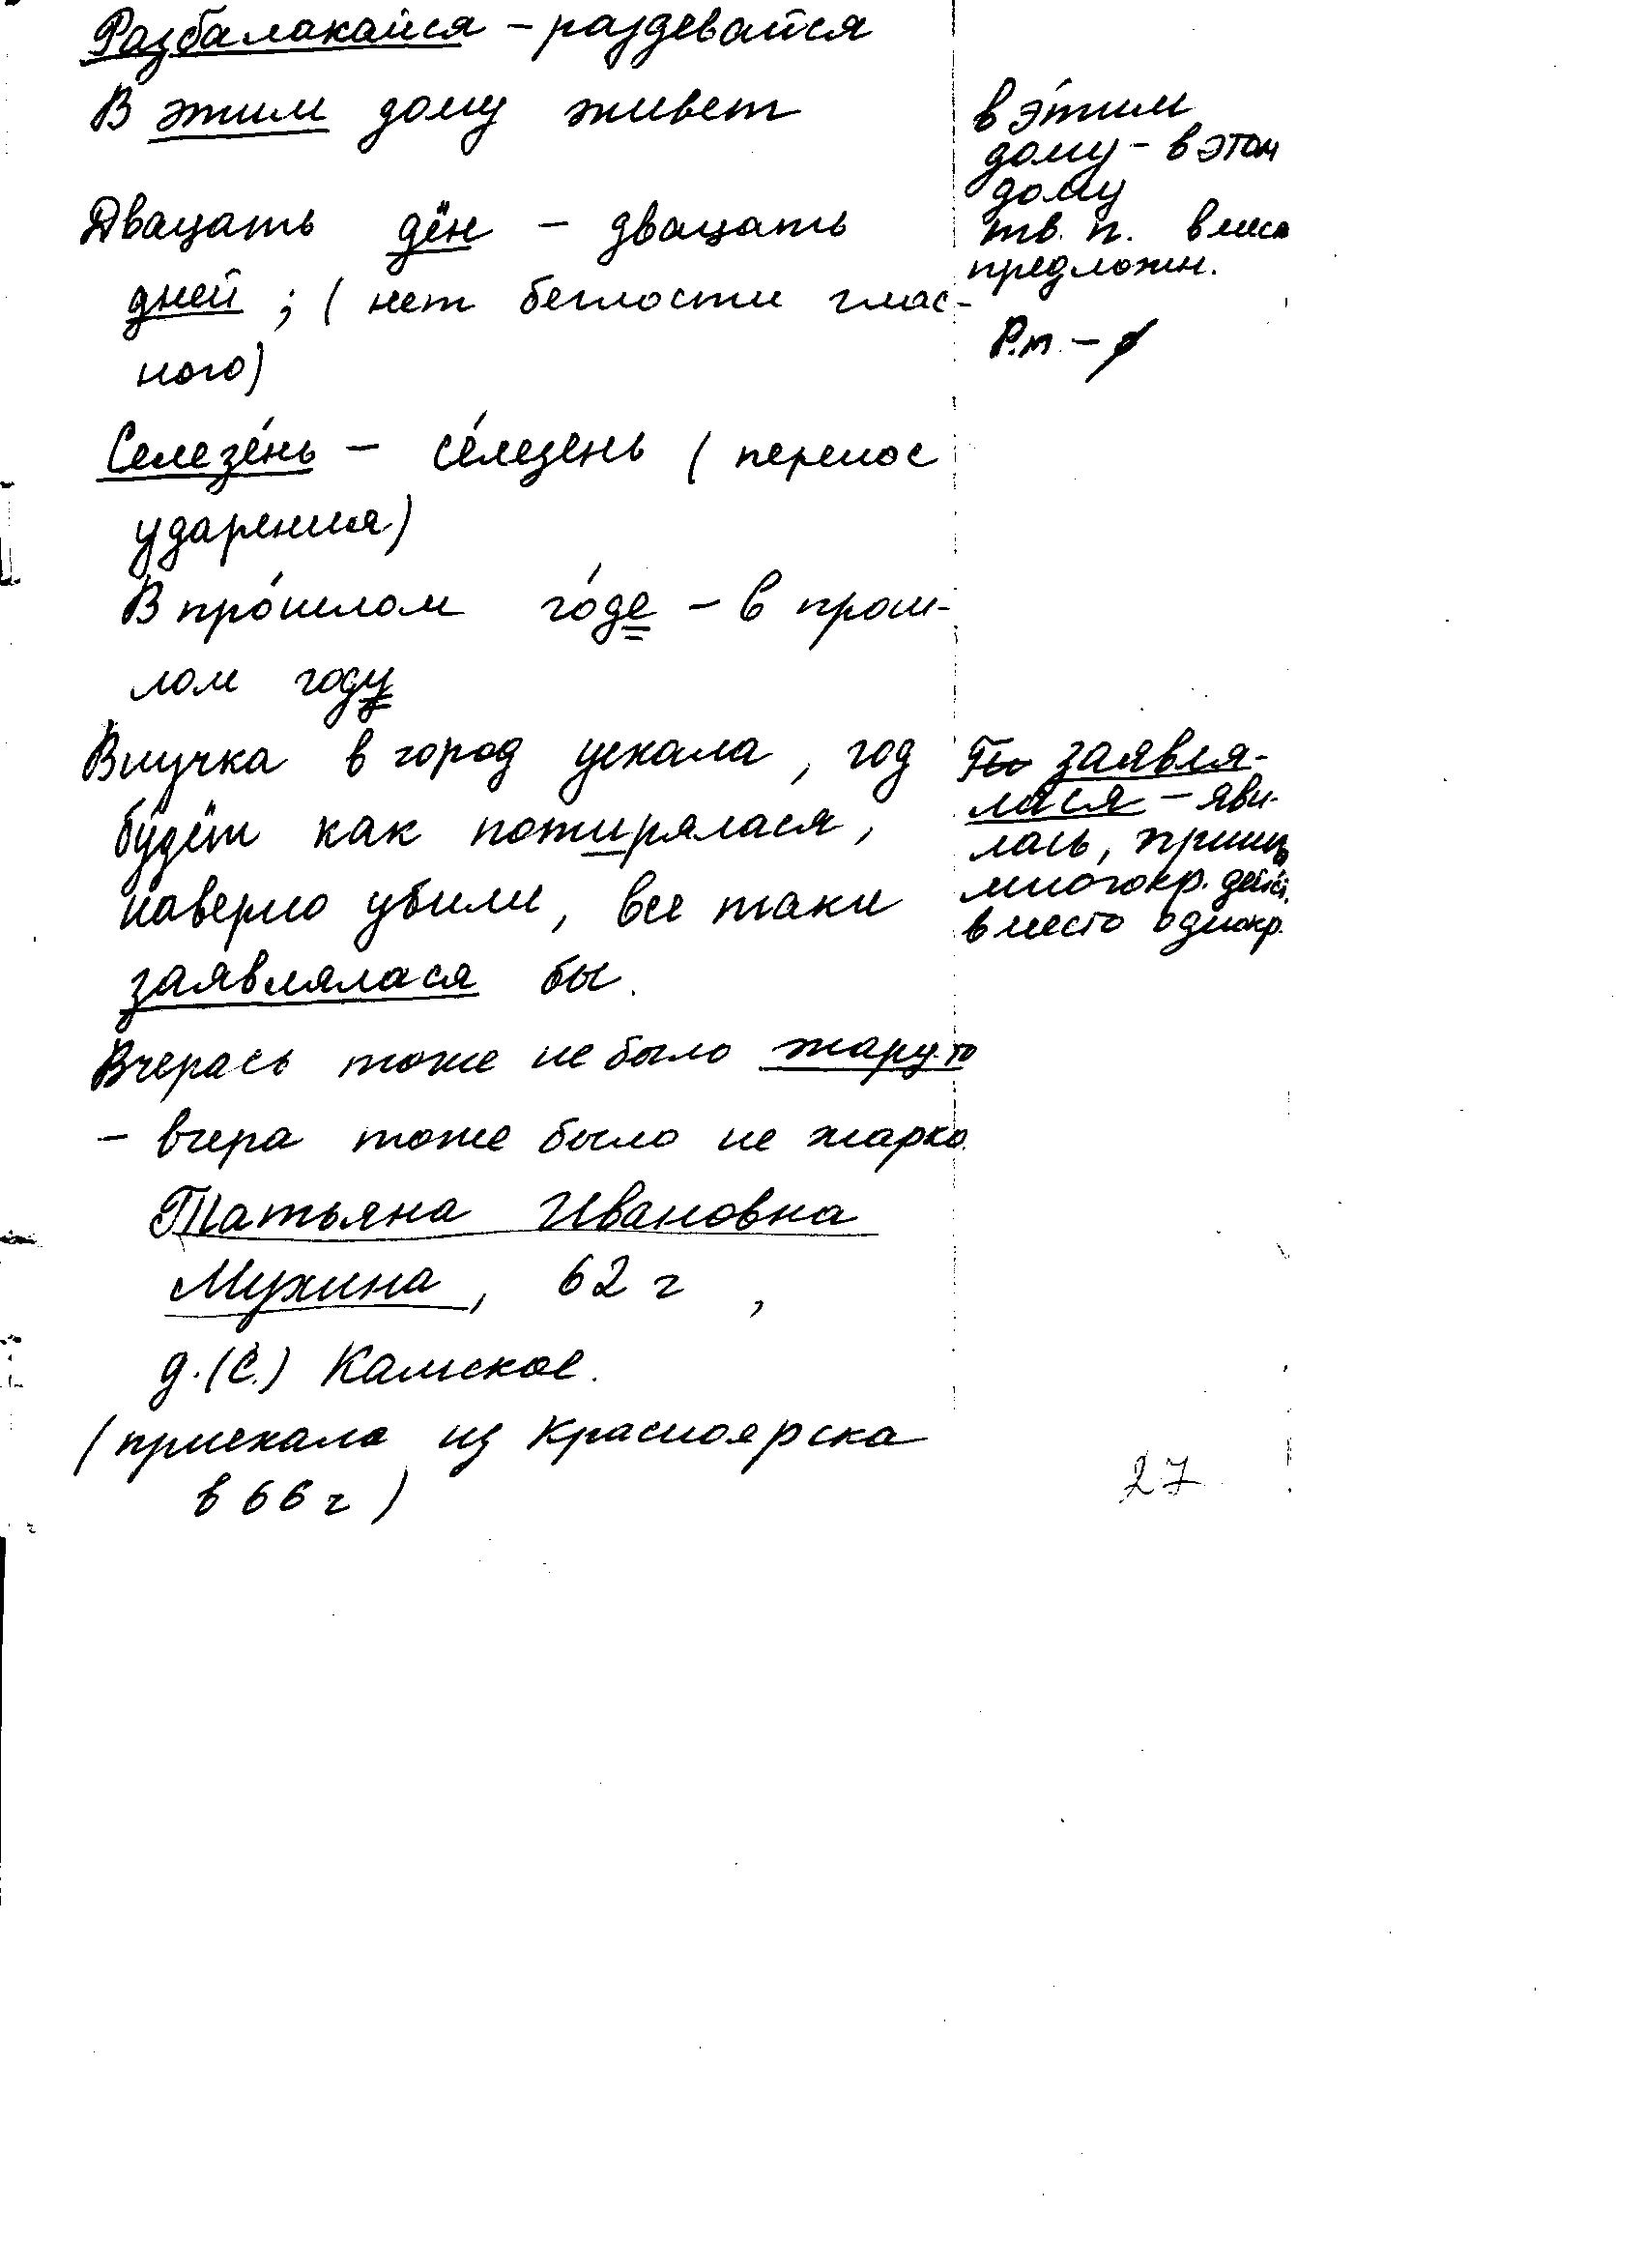 Разбалакайся – раздевайся
В этим дому живет
Двацать дён – двацать
дней ; ( нет беглости глас-
ного)
Селезе́нь – се́лезень ( перенос
ударения)
В про́шлом го́де – в прош-
лом году
Внучка в город уехала , год
бу́дёт как потирялася ,
наверно убили , все таки
заявлялася бы .
Вчерась тоже не было жару-то
– вчера тоже было не жарко.
Татьяна Ивановна
Мухина , 62 г ,
д. (с.) Камское .
( приехала из Красноярска
в 66 г )
в э́тим
дому – в этом
дому
тв. п. вмес
предложн.
Р.п. – ø
заявля-
лася – яви-
лась,
многокр. дейс.
вместо однокр.
27